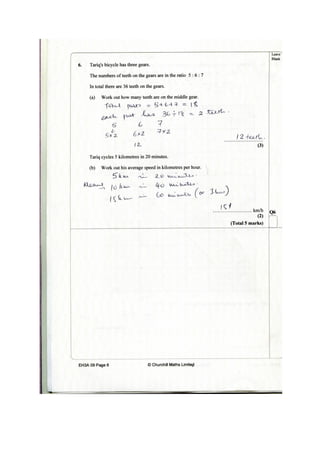 Leave
blank
6. Tariq's bicycle has three gears.
The numbers of teeth on the gears are in the ratio 5 : 6 : 7
In total there are 36 teeth on the gears.
(a) Work out how many teeth are on the middle gear.
Total parts = 5+6+7 = 18
each part has 36÷18 = 2 teeth.
5 6 7
5x2 6x2 7x2
12
12 teeth.
(3)
Tariq cycles 5 kilometres in 20 minutes.
(b) Work out his average speed in kilometres per hour.
5km in 20 minutes.
10km in 40 minutes.
15km in 60 minutes (or 1 hour)
15 km/h
Q6
(2)
(Total 5 marks)
EH3A 09 Page 8
© Churchill Maths Limited